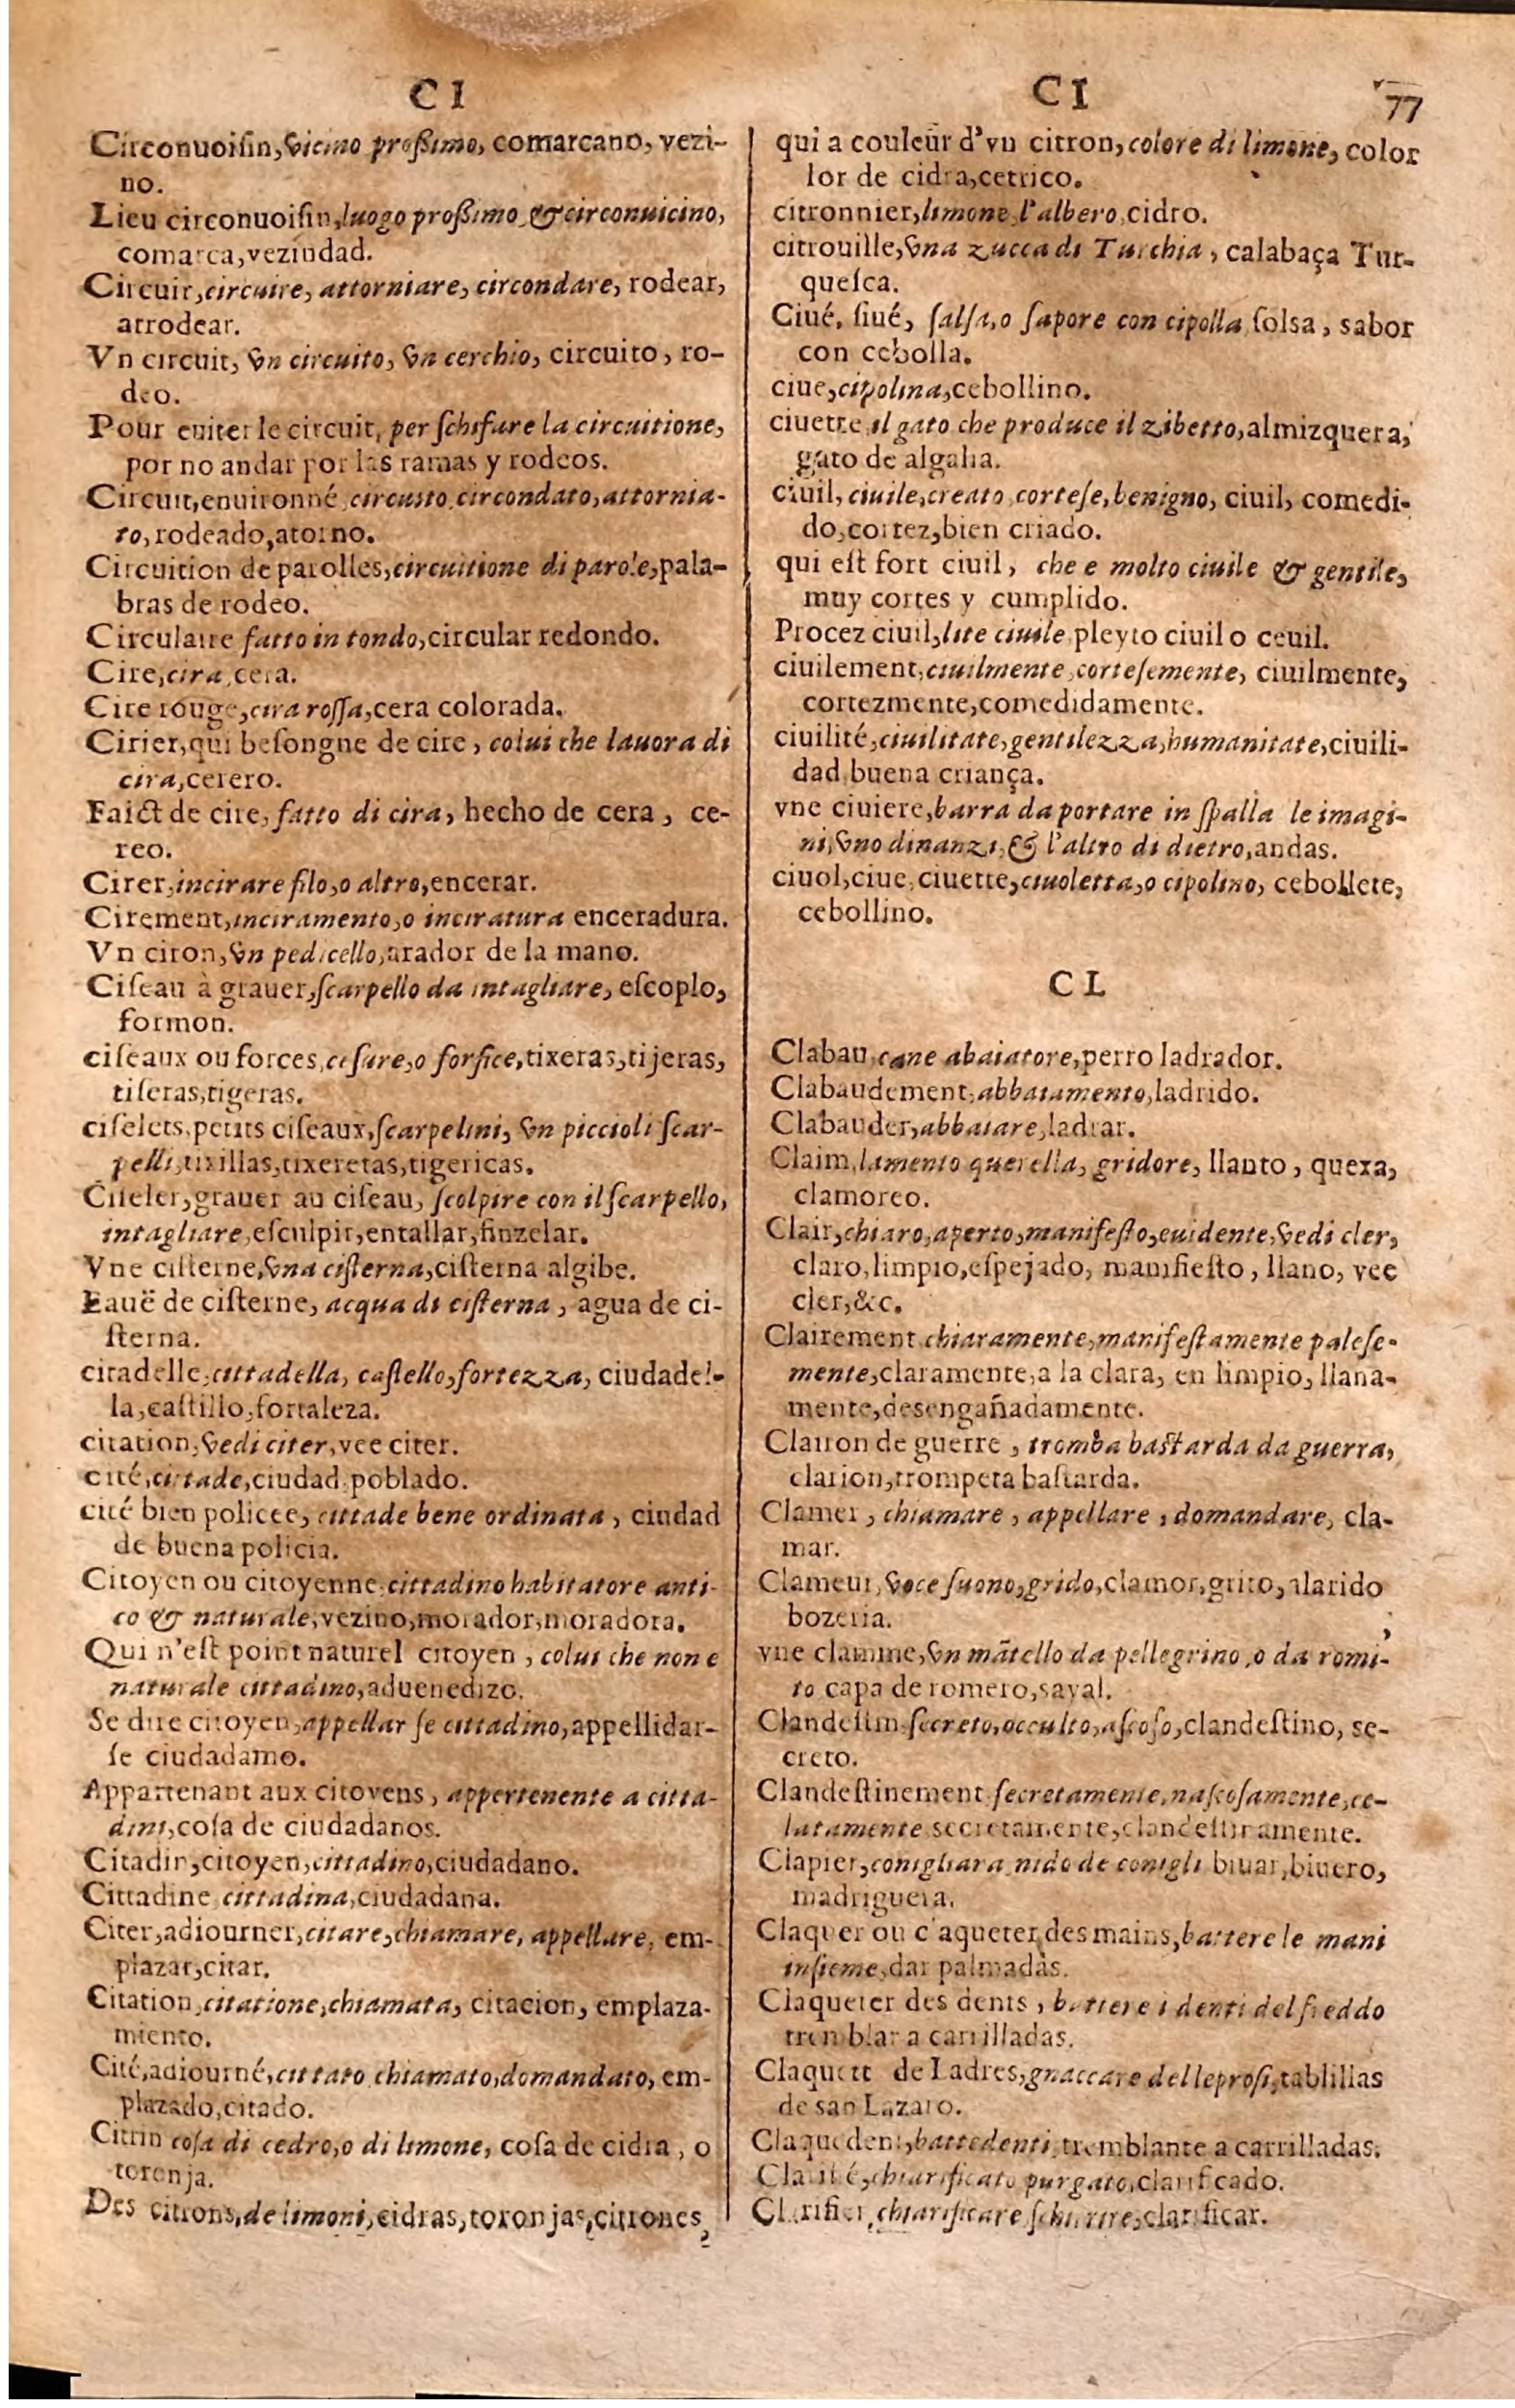 C I
Circonuoiſin, vicino proßimo, comarcano, vezi-
no.
Lieu circonuoiſin, luogo proßimo & circonuicino,
comarca, vezindad.
Circuir, circuire, attorniare, circondare, rodear,
arrodear.
Vn circuit, vn circuito, vn cerchio, circuito, ro-
deo.
Pour euiter le circuit, per ſchifare la circuitione,
por no andar por las ramas y rodeos.
Circuit, enuironné, circuito, circondato, attornia-
to, rodeado, atorno.
Circuition de parolles, circuitione di parole, pala-
bras de rodeo.
Circulaire fatto in tondo, circular redondo.
Cire, cira, cera.
Cire rouge, cira roſſa, cera colorada.
Cirier, qui beſongne de cire, colui che lauora di
cira, cerero.
Faict de cire, fatto di cira, hecho de cera, ce-
reo.
Cirer, incirare filo, o altro, encerar.
Cirement, inciramento, o inciratura enceradura.
Vn ciron, vn pedicello, arador de la mano.
Ciſeau à grauer, ſcarpello da intagliare, eſcoplo,
formon.
ciſeaux ou forces, ceſure, o forfice, tixeras, tijeras,
tiſeras, tigeras.
ciſelets, petits ciſeaux, ſcarpelini, vn piccioli ſcar-
pelli, tixillas, tixeretas, tigericas.
Ciſeler, grauer au ciſeau, ſcolpire con il ſcarpello,
intagliare, eſculpir, entallar, ſinzelar.
Vne ciſterne, vna ciſterna, ciſterna algibe.
Eauë de ciſterne, acqua di ciſterna, agua de ci-
ſterna.
citadelle, cittadella, caſtello, fortezza, ciudadel-
la, caſtillo, fortaleza.
citation, vedi citer, vee citer.
cité, cittade, ciudad, poblado.
cité bien policee, cittade bene ordinata, ciudad
de buena policia.
Citoyen ou citoyenne, cittadino habitatore anti-
co & naturale, vezino, morador, moradora.
Qui n'eſt point naturel citoyen, colui che non e
naturale cittadino, aduenedizo.
Se dire citoyen, appellar ſe cittadino, appellidar-
ſe ciudadamo.
Appartenant aux citoyens, appertenente a citta-
dini, coſa de ciudadanos.
Citadin, citoyen, cittadino, ciudadano.
Cittadine cittadina, ciudadana.
Citer, adiourner, citare, chiamare, appellare, em-
plazar, citar.
Citation, citatione, chiamata, citacion, emplaza-
miento.
Cité, adiourné, cittato, chiamato, domandato, em-
plazado, citado.
Citrin coſa di cedro, o di limone, coſa de cidra, o
toronja.
Des citrons, de limoni, cidras, toronjas, citrones,
C I 77
qui a couleur d'vn citron, colore di limone, color
lor de cidra, cetrico.
citronnier, limone, l'albero, cidro.
citrouille, vna zucca di Turchia, calabaça Tur-
queſca.
Ciué, ſiué, ſalſa, o ſapore con cipolla, ſolsa, sabor
con cebolla.
ciue, cipolina, cebollino.
ciuette, il gato che produce il zibetto, almizquera,
gato de algalia.
ciuil, ciuile, creato, corteſe, benigno, ciuil, comedi-
do, cortez, bien criado.
qui eſt fort ciuil, che e molto ciuile & gentile,
muy cortes y cumplido.
Procez ciuil, lite ciuile, pleyto ciuil o ceuil.
ciuilement, ciuilmente, corteſemente, ciuilmente,
cortezmente, comedidamente.
ciuilité, ciuilitate, gentilezza, humanitate, ciuili-
dad, buena criança.
vne ciuiere, barra da portare in ſpalla le imagi-
ni, vno dinanzi, & l'altro di dietro, andas.
ciuol, ciue, ciuette, ciuoletta, o cipolino, cebollete,
cebollino.
C L
Clabau, cane abaiatore, perro ladrador.
Clabaudement, abbaiamento, ladrido.
Clabauder, abbaiare, ladrar.
Claim, lamento querella, gridore, llanto, quexa,
clamoreo.
Clair, chiaro, aperto, manifeſto, euidente, vedi cler,
claro, limpio, eſpejado, manifieſto, llano, vee
cler, &c.
Clairement chiaramente, manifeſtamente paleſe-
mente, claramente, a la clara, en limpio, llana-
mente, desengañadamente.
Clairon de guerre, tromba baſtarda da guerra,
clarion, trompeta baſtarda.
Clamer, chiamare, appellare, domandare, cla-
mar.
Clameur, voce ſuono, grido, clamor, grito, alarido
bozeria.
vne clamine, vn mãtello da pellegrino, o da romi-
to capa de romero, sayal.
Clandeſtin, ſecreto, occulto, aſcoſo, clandeſtino, se-
creto.
Clandeſtinement, ſecretamente, naſcoſamente, ce-
latamente secretamente, clandeſtinamente.
Clapier, conigliara, nido de conigli, biuar, biuero,
madriguera.
Claquer ou claqueter des mains, battere le mani
inſieme, dar palmadas.
Claqueter des dents, battere i denti del freddo
tremblar a carrilladas.
Claquett de Ladres, gnaccare delleproſi, tablillas
de san Lazaro.
Claquedent, battedenti, tremblante a carrilladas.
Clarifié, chiarificato purgato, clarificado.
Clarifier, chiarificare ſchiarire, clarificar.